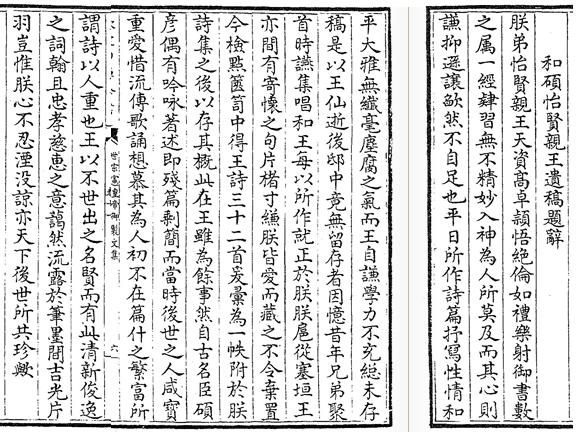 和碩怡賢親王遺稿題辭
朕弟怡賢親王天資高卓頴悟絶倫如禮樂射御書數
之属一經肄習無不精妙入神為人所莫及而其心則
謙抑遜讓欿然不自足也平日所作詩篇抒寫性情和
平大雅無纖毫塵腐之氣而王自謙學力不充緫未存
稿是以王仙逝後邸中竟無留存者因憶昔年兄弟聚
首時讌集唱和王每以所作就正於朕朕扈從塞垣王
亦間有寄懷之句片楮寸縑朕皆愛而藏之不令棄置
今檢點篋笥中得王詩三十二首爰彙為一帙附於朕
詩集之後以存其概此在王雖為餘事然自古名臣碩
彦偶有吟咏著述即殘篇剩簡而當時後世之人咸寶
重愛惜流傳歌誦想慕其為人初不在篇什之繁富所
世宗憲皇帝御製文集
六
謂詩以人重也王以不世出之名賢而有此清新俊逸
之詞翰且忠孝慈惠之意藹然流露於筆墨間吉光片
羽豈惟朕心不忍湮没諒亦天下後世所共珍歟